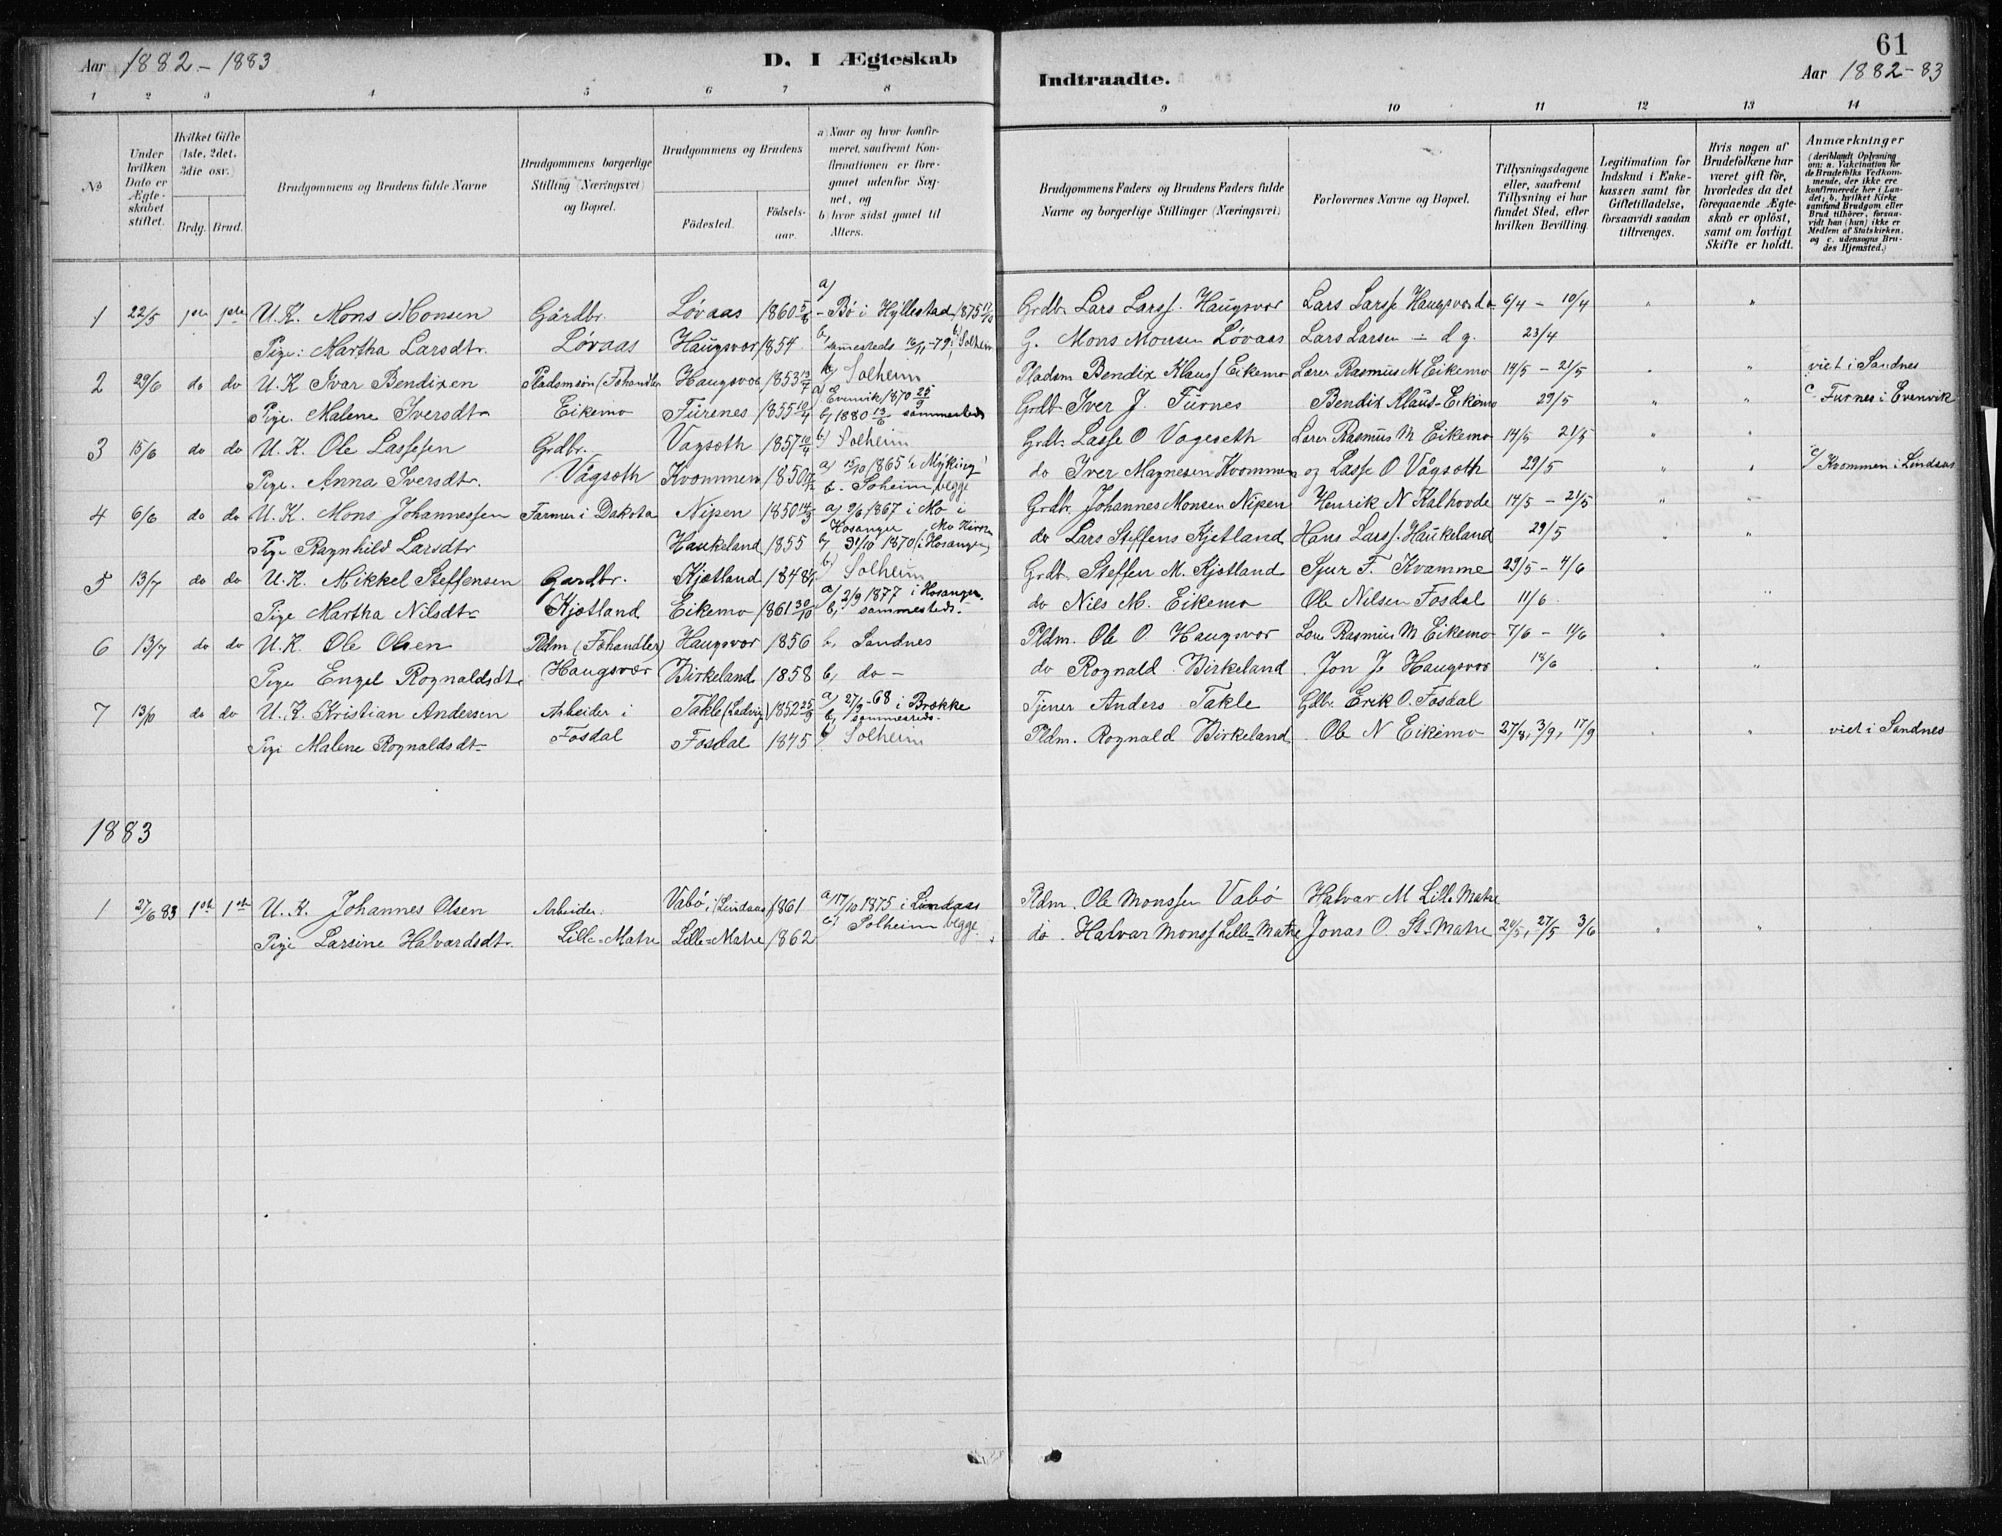 Aar 1882-1883
D. I Ægteskab
Indtraadte.
61
Aar 1882-83
1 2 3 4 5 6 7 8 9 10 11 12 13 14
№
Under hvilken Dato er Ægteskabet stiftet.
Hvilket Gifte (1ste, 2det, 3die osv.)
Brdg. Brud.
Brudgommens og Brudens fulde Navne
Brudgommens borgerlige Stilling (Næringsvei) og Bopæl.
Brudgommens og Brudens
Födested. Födselsaar.
a) Naar og hvor konfirmeret, saafremt Konfirmationen er foregaaet udenfor Sognet, og
b) hvor sidst gaaet til Alters.
Brudgommens Faders og Brudens Faders fulde Navne og borgerlige Stillinger (Næringsvei)
Forlovernes Navne og Bopæl.
Tillysningsdagene eller, saafremt Tillysning ei har fundet Sted, efter hvilken Bevilling.
Legitimation for Indskud i Enkekassen samt for Giftetilladelse, forsaavidt saadan tiltrænges.
Hvis nogen af Brudefolkene har været gift för, hvorledes da det foregaaende Ægteskab er oplöst, samt om lovligt Skifte er holdt.
Anmærkninger
(deriblandt Oplysning om: a. Vakcination for de Brudefolks Vedkommende, der ikke ere konfirmerede her i Landet; b. hvilket Kirkesamfund Brudgom eller Brud tilhörer, forsaavidt han (hun) ikke er Medlem af Statskirken. og c. udensogns Brudes Hjemsted.)
1 22/5 1ste 1ste U. K. Mons Monsen Gårdbr. Løvaas 1860 a/ - Bø i Hyllestad 1875 Grdb. Lars Larss. Haugsvor Lars Larss Haugsvor 6/4 - 10/4 " "
Pige: Martha Larsdtr. Løvaas Haugsvor 1854 sammesteds Solheim G. Mons Monsen Løvaas Lars Larsen - d g. 23/4
2 29/6 do do U. K Ivar Bendixen Pladsmsøn (Fohandler Haugsvor 1853 13/7 b/ Solheim Pladsm Bendix Klauss Eikemo Lærer Rasmus M Eikemo 14/5 - 21/5 " " viet i Sandnes
Pige. Malene Iversdtr Eikemo Furenes 1855 10/4 a/ Evenvik 1870 25/9 b, 1880 13/6 sammesteds Grdb Iver J. Furnes Bendix Klaus-Eikemo 29/5 c Furnes i Evenvik
3 15/6 do do U. K. Ole Lassesen Grdbr. Vagsoth 1857 10/4 b/ Solheim Grdb. Lasse O Vageseth Lærer Rasmus M Eikemo 14/5 21/5 "
Pige. Anna Iversdtr. Vågsoth Kvommen 1850 a/ 15/10 1865 i Myking b. Soheim begge do Iver Magnesen Kvommen og Lasse O Vågsoth 29/5 " c/ Kvommen i Lindaas
4 6/6 do do U. K. Mons Johannessen Farmer i Dakota Nipen 1850 14/3 a/ 9/6 1867 i Mo i Hosanger Grdb. Johannes Monsen Nipen Henrik N Kalhovde 14/5 - 21/5 "
Pige Ragnhild Larsdtr Haukeland 1855 b/ 31/10 1870 (i Hosanger) do Lars Steffens Kjetland Hans Larss. Haukeland 29/5 " "
5 13/7 do do U. K. Mikkel Steffensen Gardbr. Kjøtland 1848 b/ Solheim Grdb. Steffen M. Kjøtland Sjur F. Kvamme 29/5 - 4/6
Pige Martha Nilsdtr Kjøtland Eikemo 1861 30/10 a/ 2/9 1877 i Hosanger. b, sammesteds. do Nils M. Eikemo Ole Nilsen Fosdal 11/6 "
6 13/7 do do U. K. Ole Olsen Pldm (Fohandler) Haugsvor 1856 b, Sandnes Pldm. Ole O Haugsvor Rasmus M Eikemo 7/6 - 11/6
Pige Engel Rognaldsdtr Haugsvær Birkeland 1858 b, do - do Rognald Birkeland Jon J. Haugsvor 18/6 "
7 13/10 do do U. K. Kristian Andersen Arbeider i Takle (Ladvig) 1852 25/9 a/ 27/9-68 i Brække b, sammesteds. Tjener Anders Takle Gdbr Erik O. Fosdal
Pige Malene Rognaldsdt Fosdal Fosdal 1845 b/ Solheim Pldm. Rognald Birkeland Ole N Eikemo 27/8, 3/9, 17/9 " " viet i Sandnes
1883
1 27/6 83 1ste 1ste U. K. Johannes Olsen Arbeider Vabø i (Lindaas) 1861 a/ 17/10 1875 i Lindaas Pldm. Ole Monssen Vabø Halvar M Lille Matre
Pige Larsine Halvardsdtr. Lille-Matre Lille-Matre 1862 Solheim begge. do. Halvar Monss Lille-Matre Jonas O. St-Matre 24/5, 27/5 3/6 " "